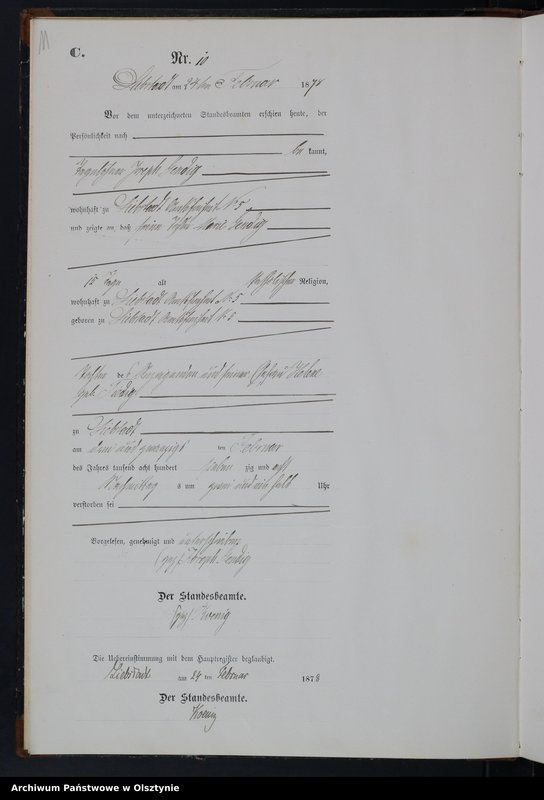 C.
Nr. 10
Liebstadt am 24 ten Februar 1878
Vor dem unterzeichneten Standesbeamten erschien heute, der
Persönlichkeit nach
be kannt,
Joseph Hendig
wohnhaft zu Liebstadt Amtsfreiheit No 5
und zeigte an, daß seine Tochter Marie Hendig
15 Tage alt Religion,
wohnhaft zu Liebstadt Amtsfreiheit No 5
geboren zu Liebstadt Amtsfreiheit No 5
Tochter des und seiner Ehefrau Helene
geb.
zu Liebstadt
am drei und zwanzigsten Februar
des Jahres tausend acht hundert sieben zig und acht
Nachmittags um zwei und ein halb Uhr
verstorben sei
Vorgelesen, genehmigt und unterschrieben
(gez) Joseph Hendig
Der Standesbeamte.
(gez) Koenig
Die Uebereinstimmung mit dem Hauptregister beglaubigt.
Liebstadt am 24 ten Februar 1878
Der Standesbeamte.
Koenig
Archiwum Państwowe w Olsztynie